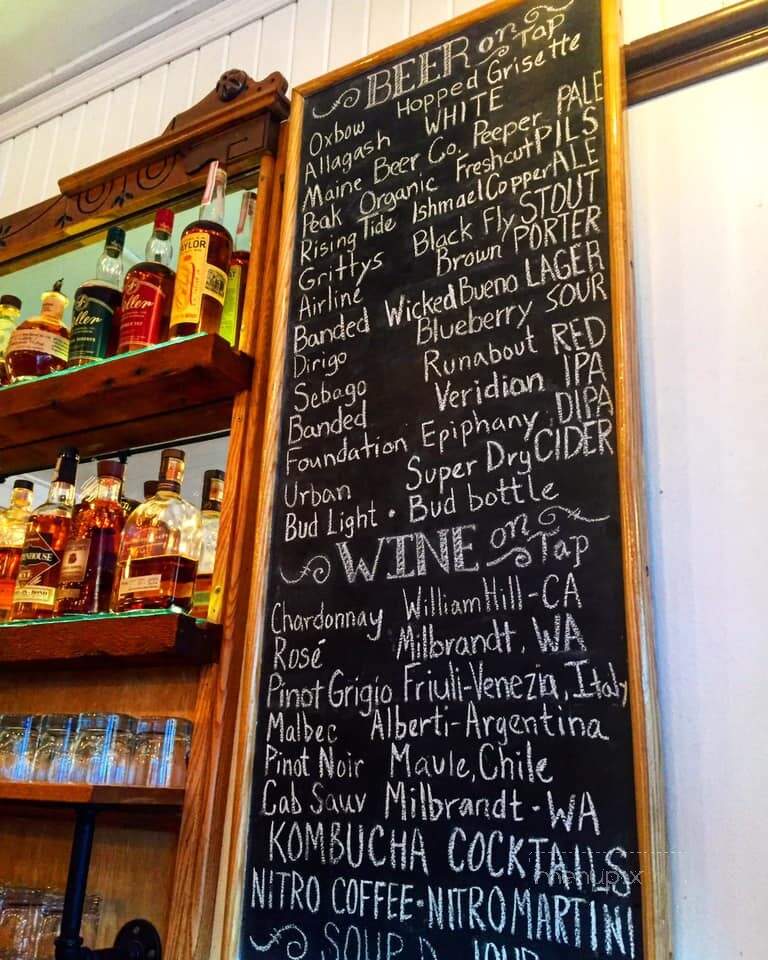 BEER on Tap
Oxbow Hopped Grisette
Allagash WHITE
Maine Beer Co. Peeper PALE
Peak Organic Freshcut PILS
Rising Tide Ishmael Copper ALE
Grittys Black Fly STOUT
Airline Brown PORTER
Banded Wicked Bueno LAGER
Dirigo Blueberry SOUR
Sebago Runabout RED
Banded Veridian IPA
Foundation Epiphany DIPA
Urban Super Dry CIDER
Bud Light • Bud bottle
WINE on Tap
Chardonnay William Hill - CA
Rosé Milbrandt, WA
Pinot Grigio Friuli-Venezia, Italy
Malbec Alberti - Argentina
Pinot Noir Maule, Chile
Cab Sauv Milbrandt - WA
KOMBUCHA COCKTAILS
NITRO COFFEE • NITRO MARTINI
SOUP D
menupix